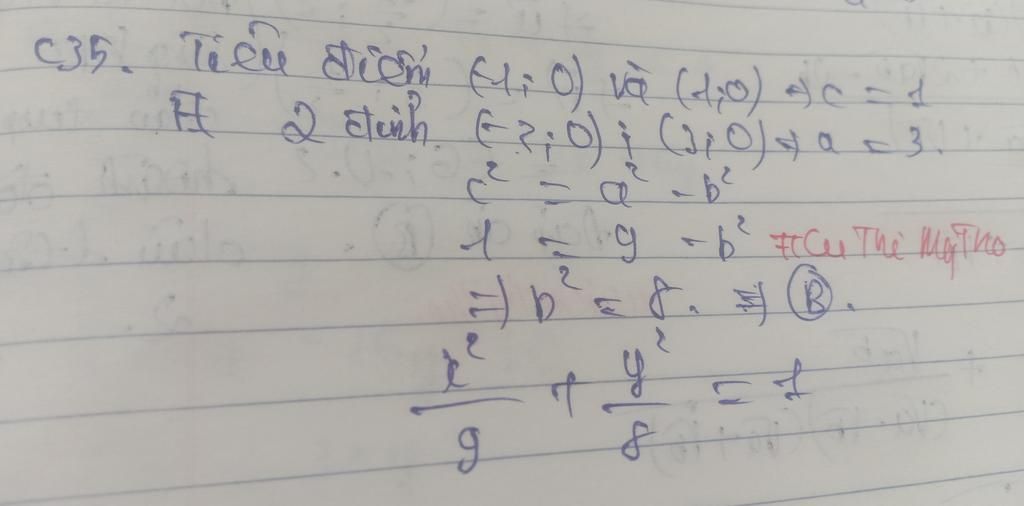 C35. Tiêu điểm (-1; 0) và (1; 0) → c = 1
2 đỉnh (-3; 0); (3; 0) → a = 3.
c² = a² - b²
1 = 9 - b² #Cu Thi Mỹ Tho
=> b² = 8. => Ⓑ.
x²/9 + y²/8 = 1